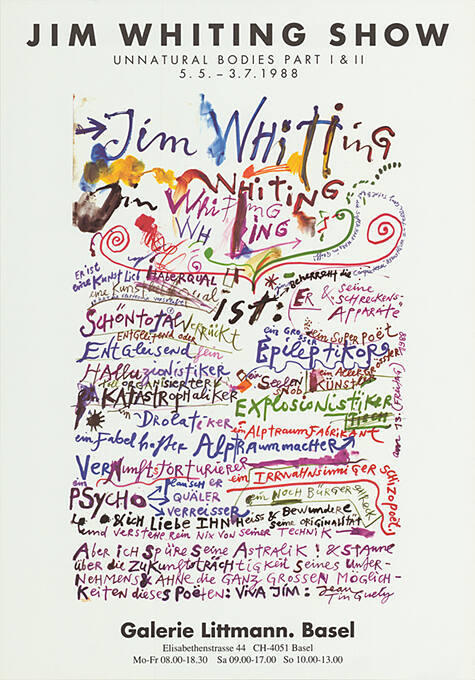 JIM WHITING SHOW
UNNATURAL BODIES PART I & II
5.5. – 3.7.1988
Jim WHiTTiNG
Jim WHITING
WHiTiNG
WH ING
ER iST
eine KUNST
eine Kunst
iST:
beherrscht die
ER & seine
SCHRECKENS-
APPARATE
SCHÖNTOTALVerrückt
ENTGleitend oder
ein GROSSER
ein SuperPoët
ENTGleisend
EpilepTiKOP
HALLUZiONiSTiKER
ein Seelen
KÜNST
toll ORGANISIERTER
KATASTROPHALiKER
EXPLOSiONiSTiKER
ein DROLATiKER
ein ALPTRAUMFABRiKANT
ein FABelHAFTER ALPTRAUMMACHER
am 13. (FREITAG) 1988
VERNUNFTSTORTURiERER
ein IRRWAHNSiNNiGER SCHiZOPOËT
ein
PSYCHO
QUÄLER
VERREISSER
ein NOCH BÜRGERSCHRECK
& iCH Liebe IHN Heiss & BewundeRe
seine ORiGiNALiTÄT
und verstehe rein Nix von seiner TECHNiK
ABER iCH SPÜRE SEiNE ASTRALiK! & STAUNE
über die ZUKUNFTSTRÄCHTiGKEiT Seines UNTER-
NEHMENS & AHNE die GANZ GROSSEN MÖGLiCH-
KEiTEN dieses POËTEN: ViVA JiM:
Jean
Tinguely
Galerie Littmann. Basel
Elisabethenstrasse 44 CH-4051 Basel
Mo-Fr 08.00-18.30 Sa 09.00-17.00 So 10.00-13.00